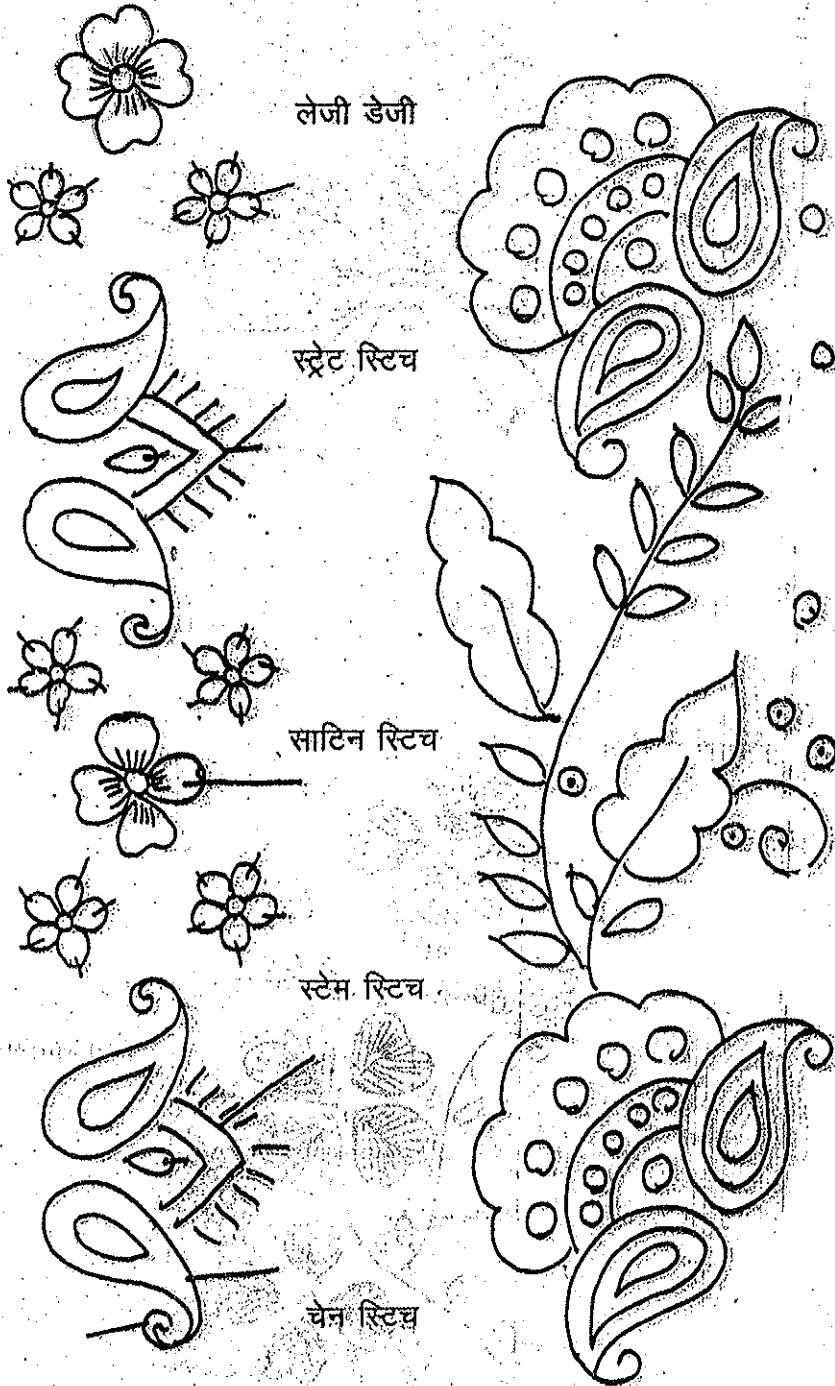 लेजी डेजी
स्ट्रेट स्टिच
साटिन स्टिच
स्टेम स्टिच
चेन स्टिच